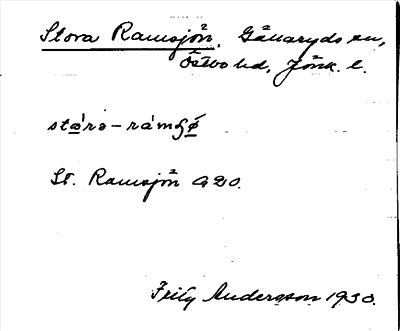 Stora Ramsjön, Gällaryds sn,
Östbo hd, Jönk. l.
stɷ́rə-rám̨ɧǿ
St. Ramsjön G20.
Fritz Anderson 1930.